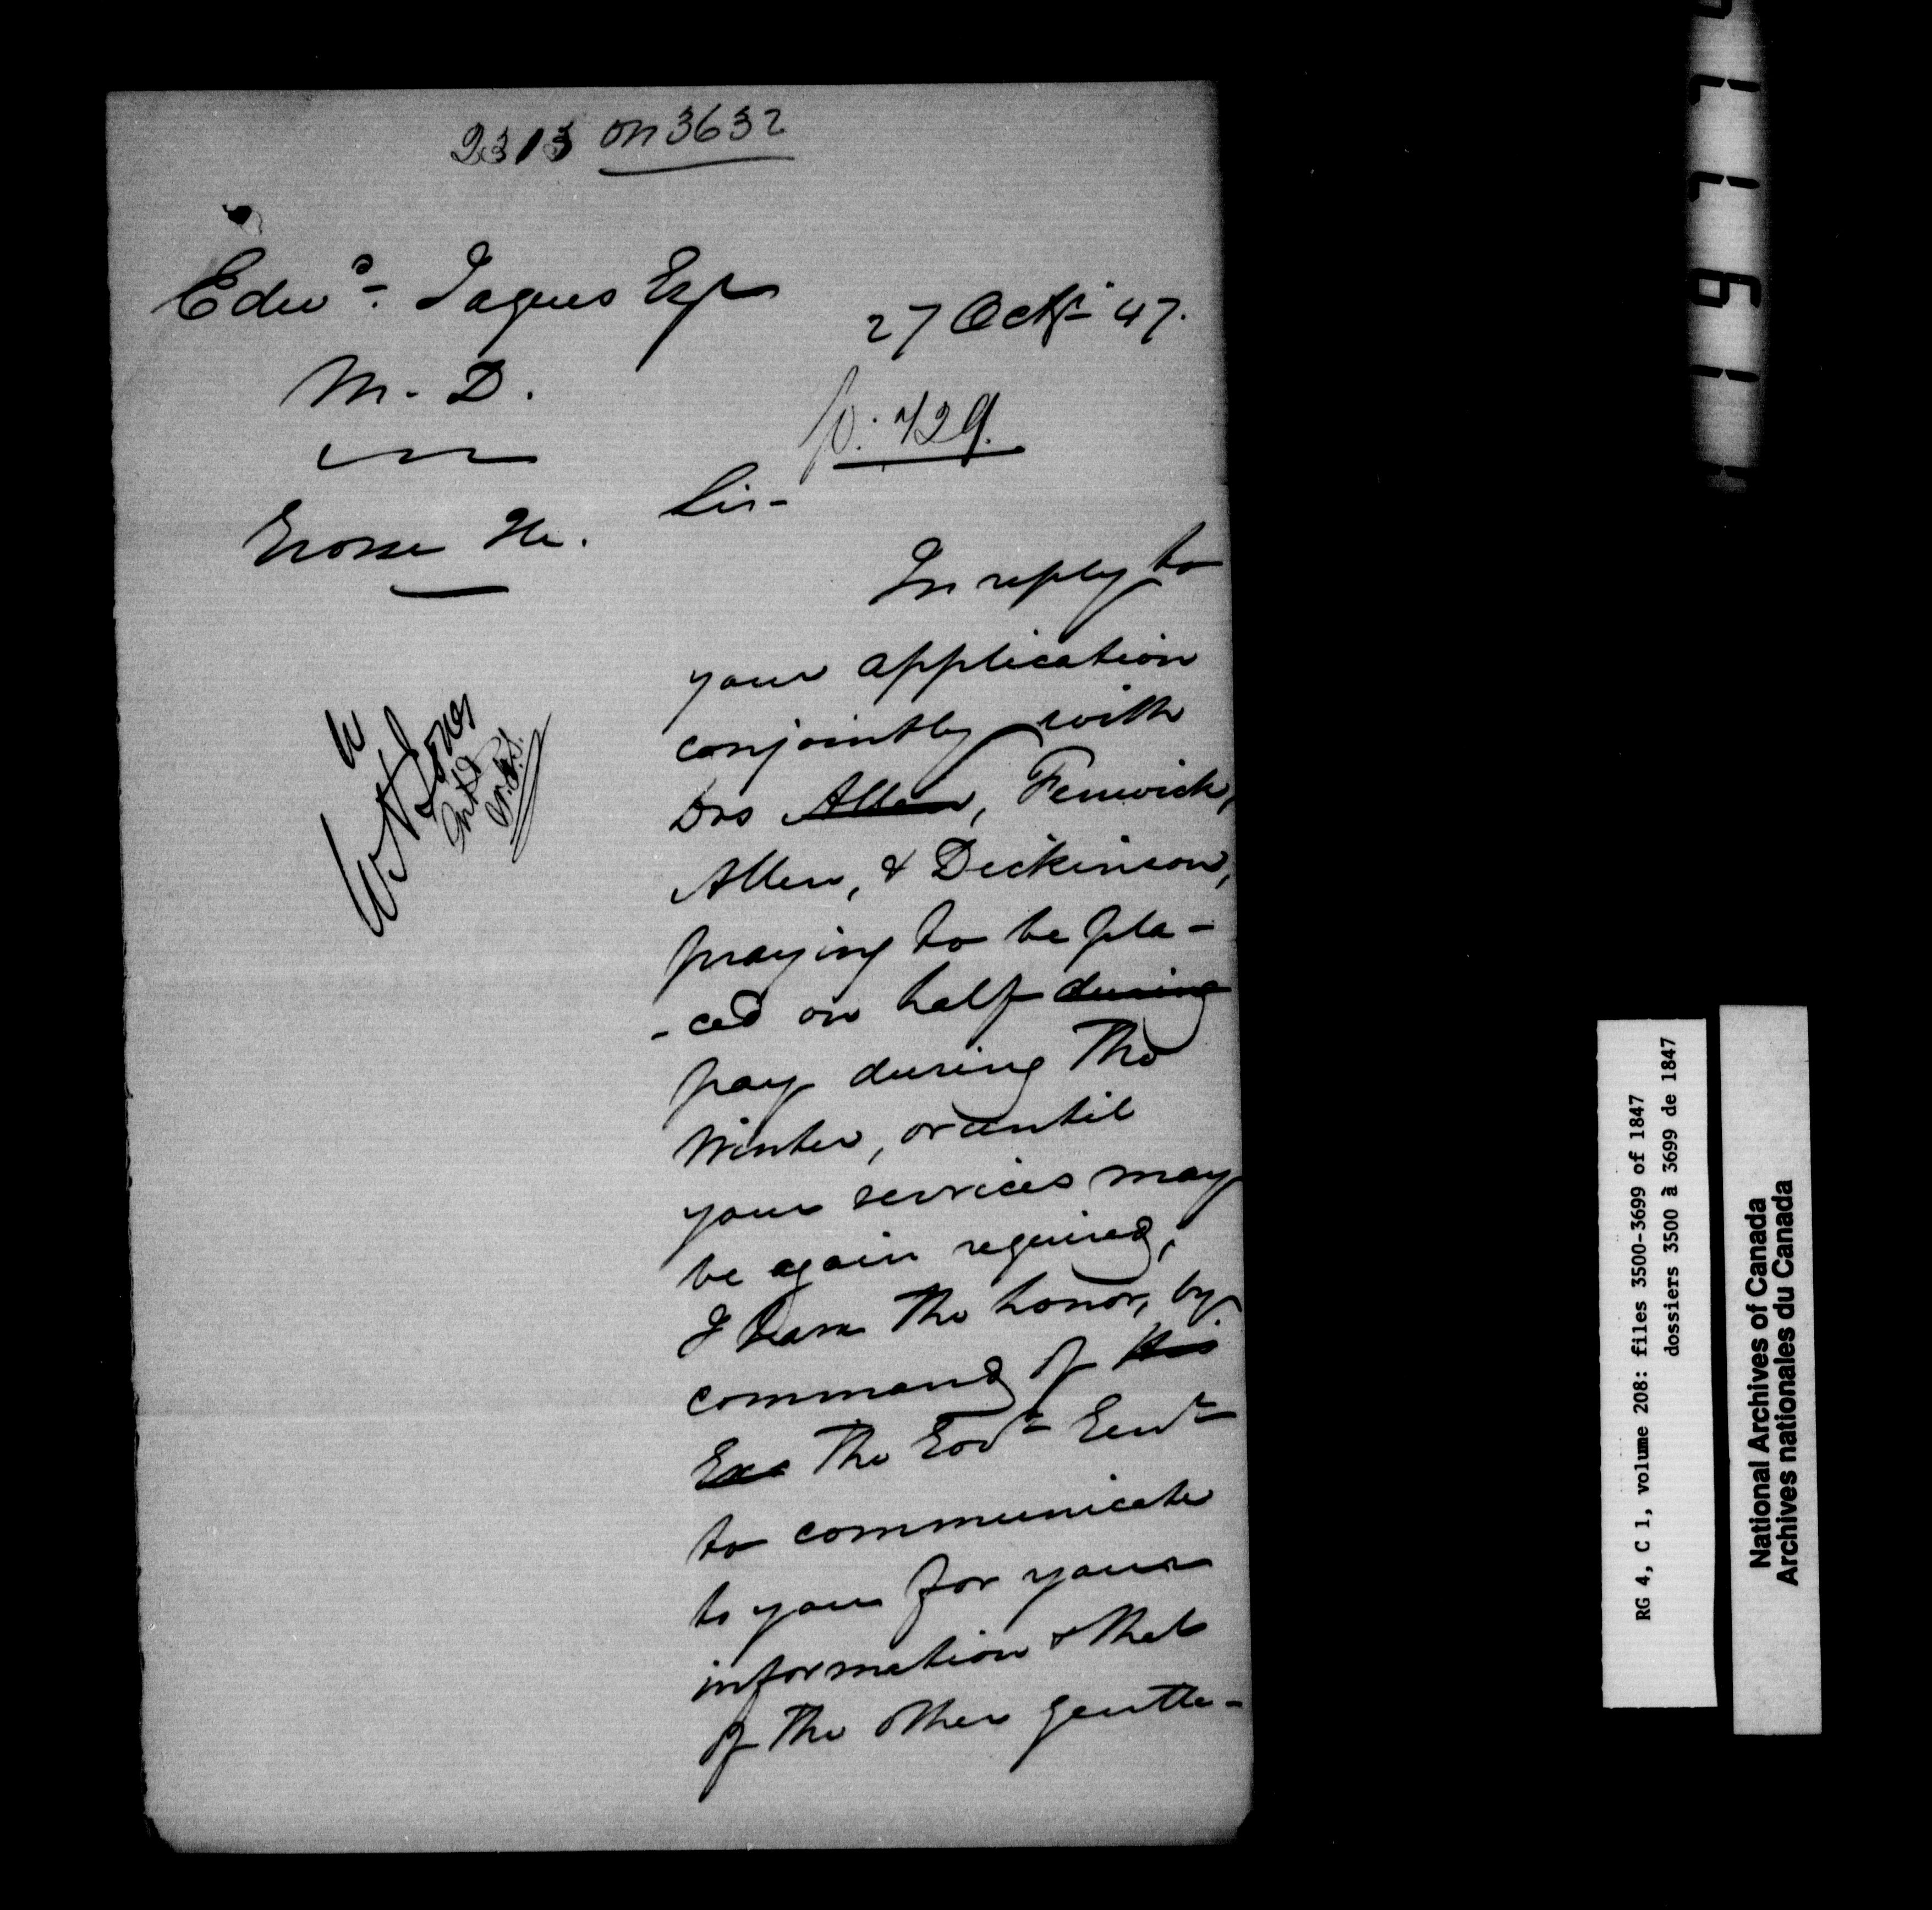 2313 on 3632
Edwd. Jaques Esqr
M. D.
27 Octr 47.
p. 429.
Grosse Ile.
Sir-
In reply to
your application
conjointly with
Drs Allen, Fenwick,
Allen, & Dickinson,
praying to be pla-
-ced on half during
pay during the
Winter, or until
your services may
be again required,
I have the honor, by
command of His
Exc the Govr Genl
to communicate
to you for your
information & that
of the other gentle-
RG 4, C 1, volume 208: files 3500-3699 of 1847
dossiers 3500 à 3699 de 1847
National Archives of Canada
Archives nationales du Canada